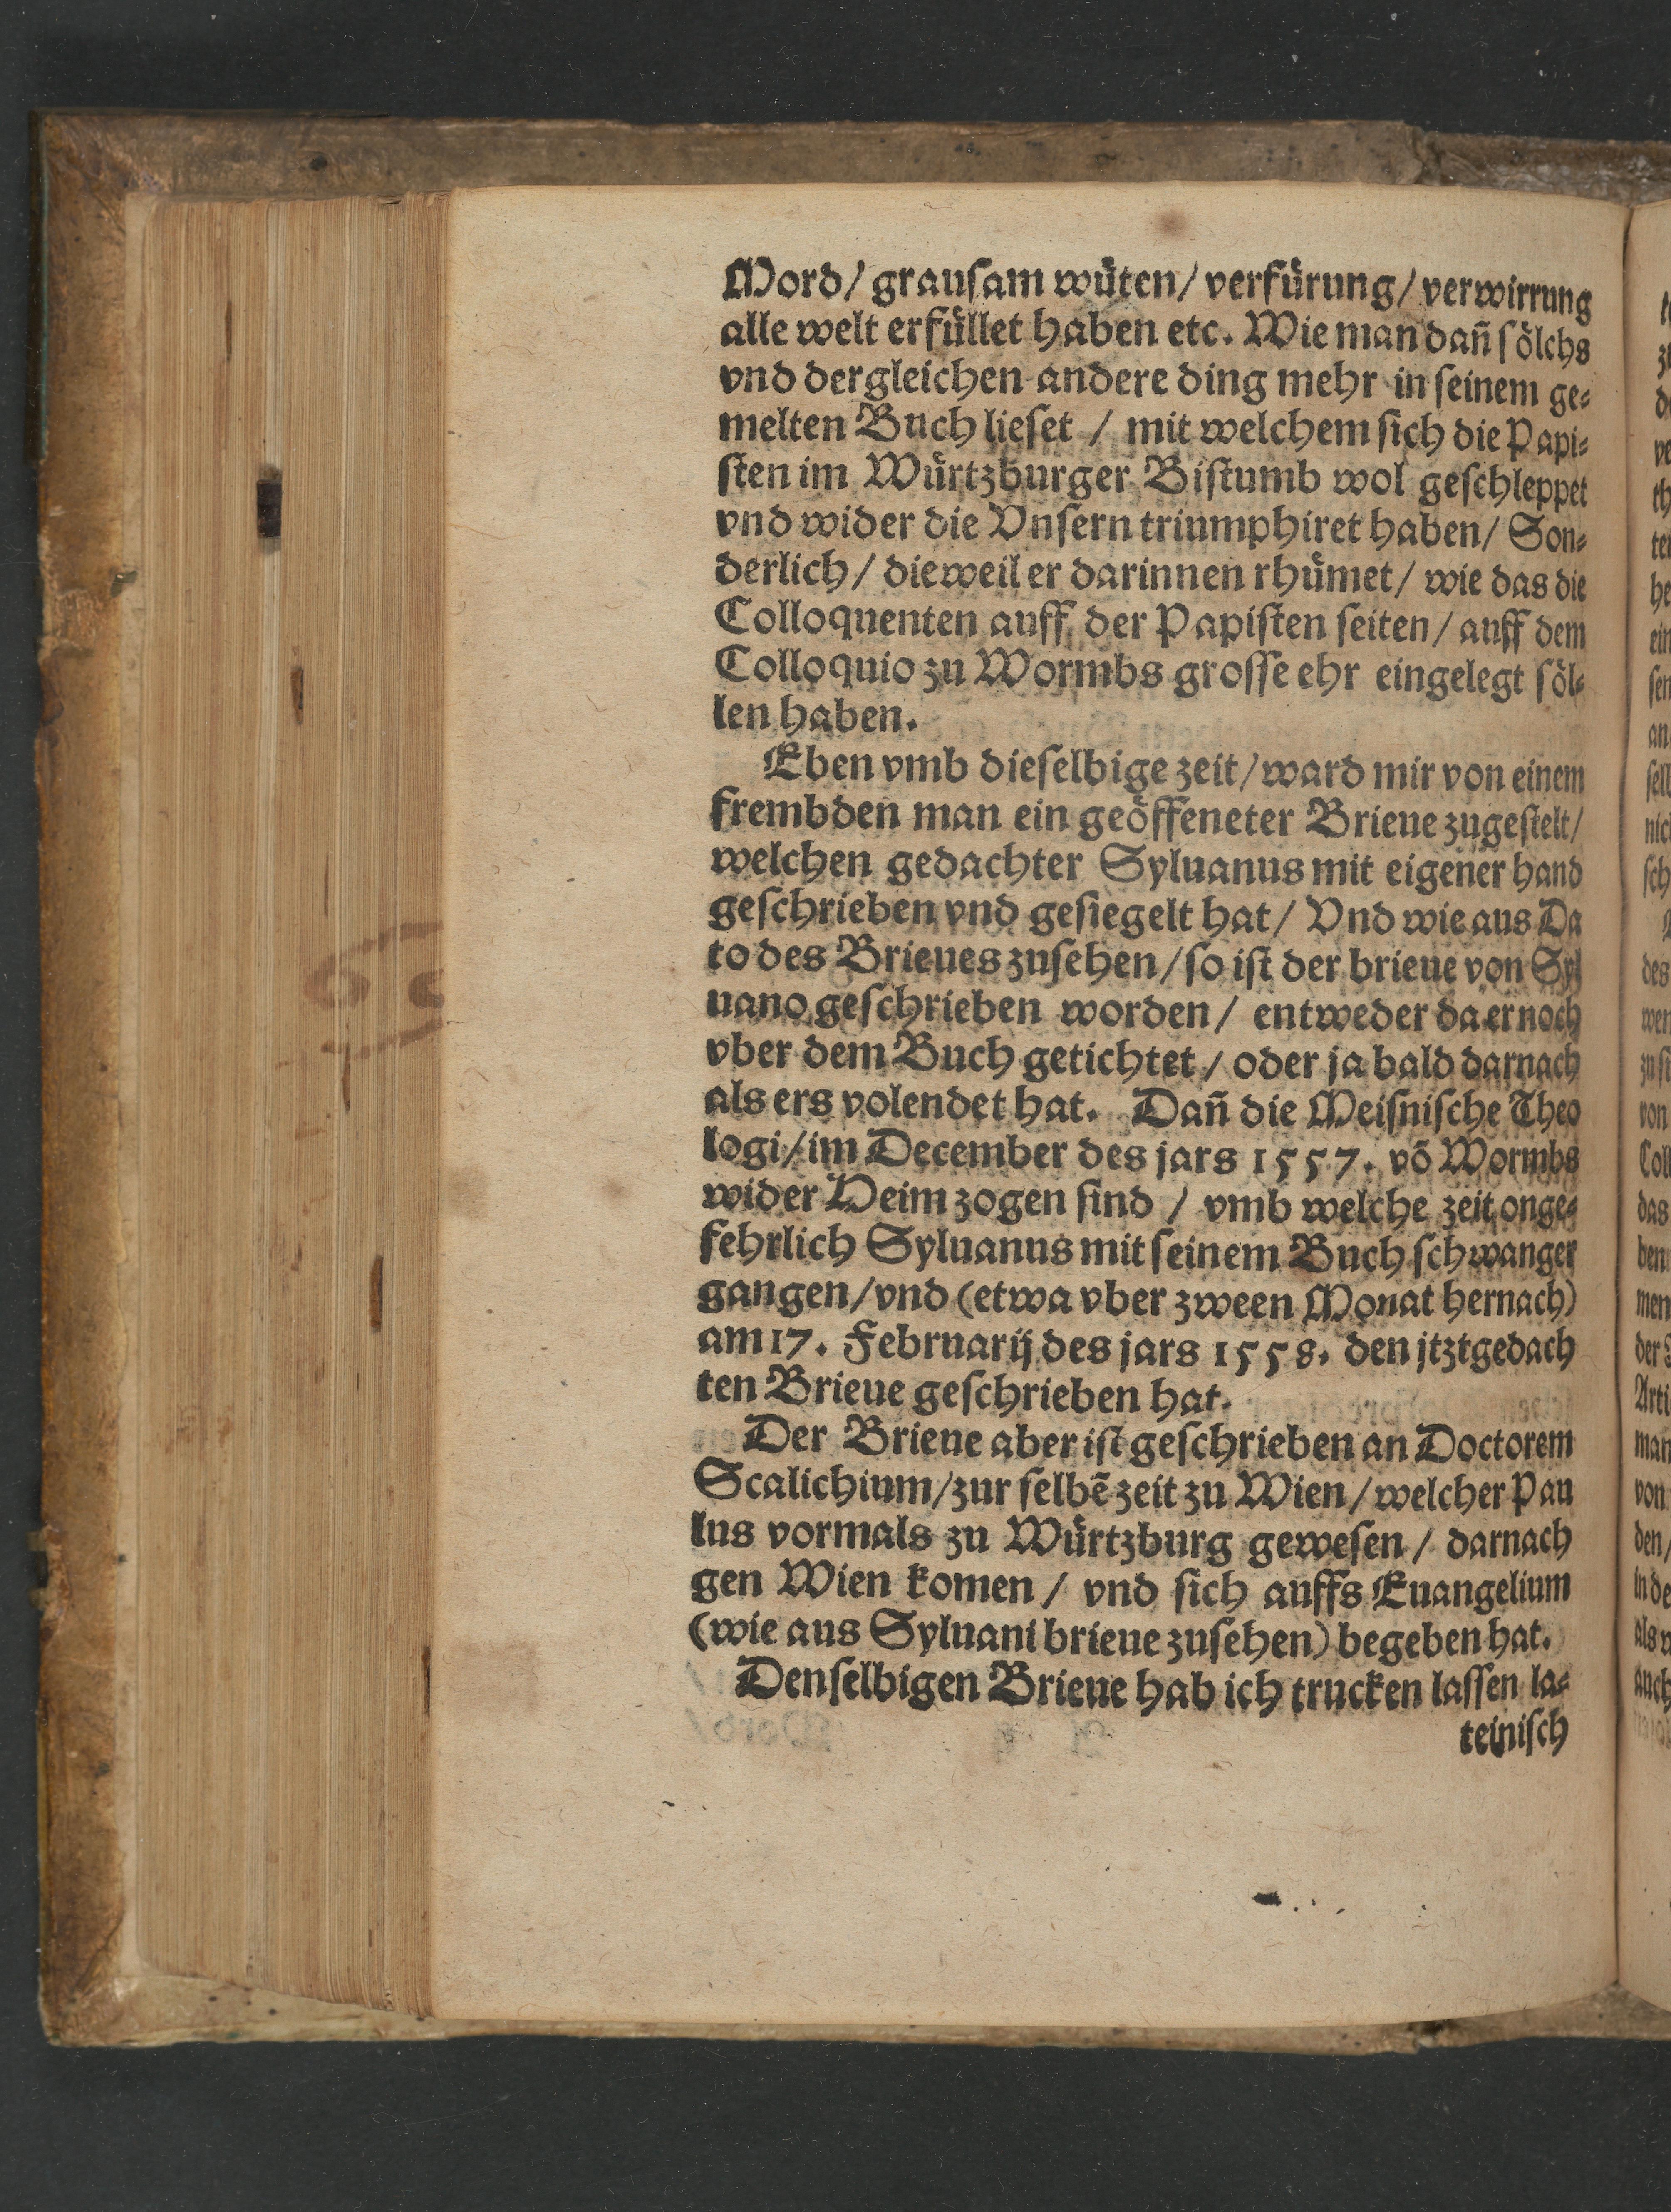 Mord/ grauſam wüten/ verfürung/ verwirrung
alle welt erfüllet haben etc. Wie man dañ ſölchs
vnd dergleichen andere ding mehr in ſeinem ge⸗
melten Buch lieſet / mit welchem ſich die Papi⸗
ſten im Würtzburger Biſtumb wol geſchleppet
vnd wider die Vnſern triumphiret haben/ Son⸗
derlich/ dieweil er darinnen rhümet/ wie das die
Colloquenten auff der Papiſten ſeiten/ auff dem
Colloquio zu Wormbs groſſe ehr eingelegt ſöl⸗
len haben.
Eben vmb dieſelbige zeit/ ward mir von einem
frembden man ein geöffeneter Brieue zugeſtelt/
welchen gedachter Syluanus mit eigener hand
geſchrieben vnd geſiegelt hat/ Vnd wie aus Da
to des Brieues zuſehen/ ſo iſt der brieue von Syl
uano geſchrieben worden/ entweder da er noch
vber dem Buch getichtet/ oder ja bald darnach
als ers volendet hat. Dañ die Meiſniſche Theo
logi/ im December des jars 1557. võ Wormbs
wider Heim zogen ſind / vmb welche zeit onge⸗
fehrlich Syluanus mit ſeinem Buch ſchwanger
gangen/ vnd (etwa vber zween Monat hernach)
am 17. Februarij des jars 1558. den jtztgedach
ten Brieue geſchrieben hat.
Der Brieue aber iſt geſchrieben an Doctorem
Scalichium/ zur ſelbẽ zeit zu Wien/ welcher Pau
lus vormals zu Würtzburg geweſen/ darnach
gen Wien komen/ vnd ſich auffs Euangelium
(wie aus Syluani brieue zuſehen) begeben hat.
Denſelbigen Brieue hab ich trucken laſſen la⸗
teiniſch